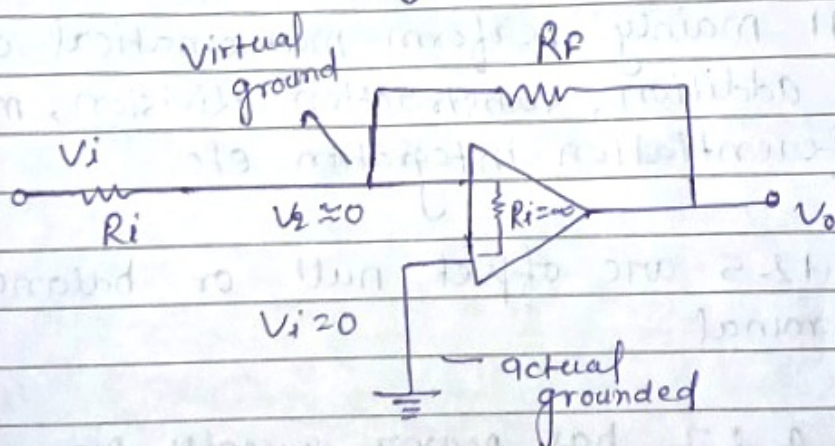 Virtual
ground
RF
Vi
Ri
V2 ≈ 0
Ri=∞
Vo
Vi = 0
actual
grounded